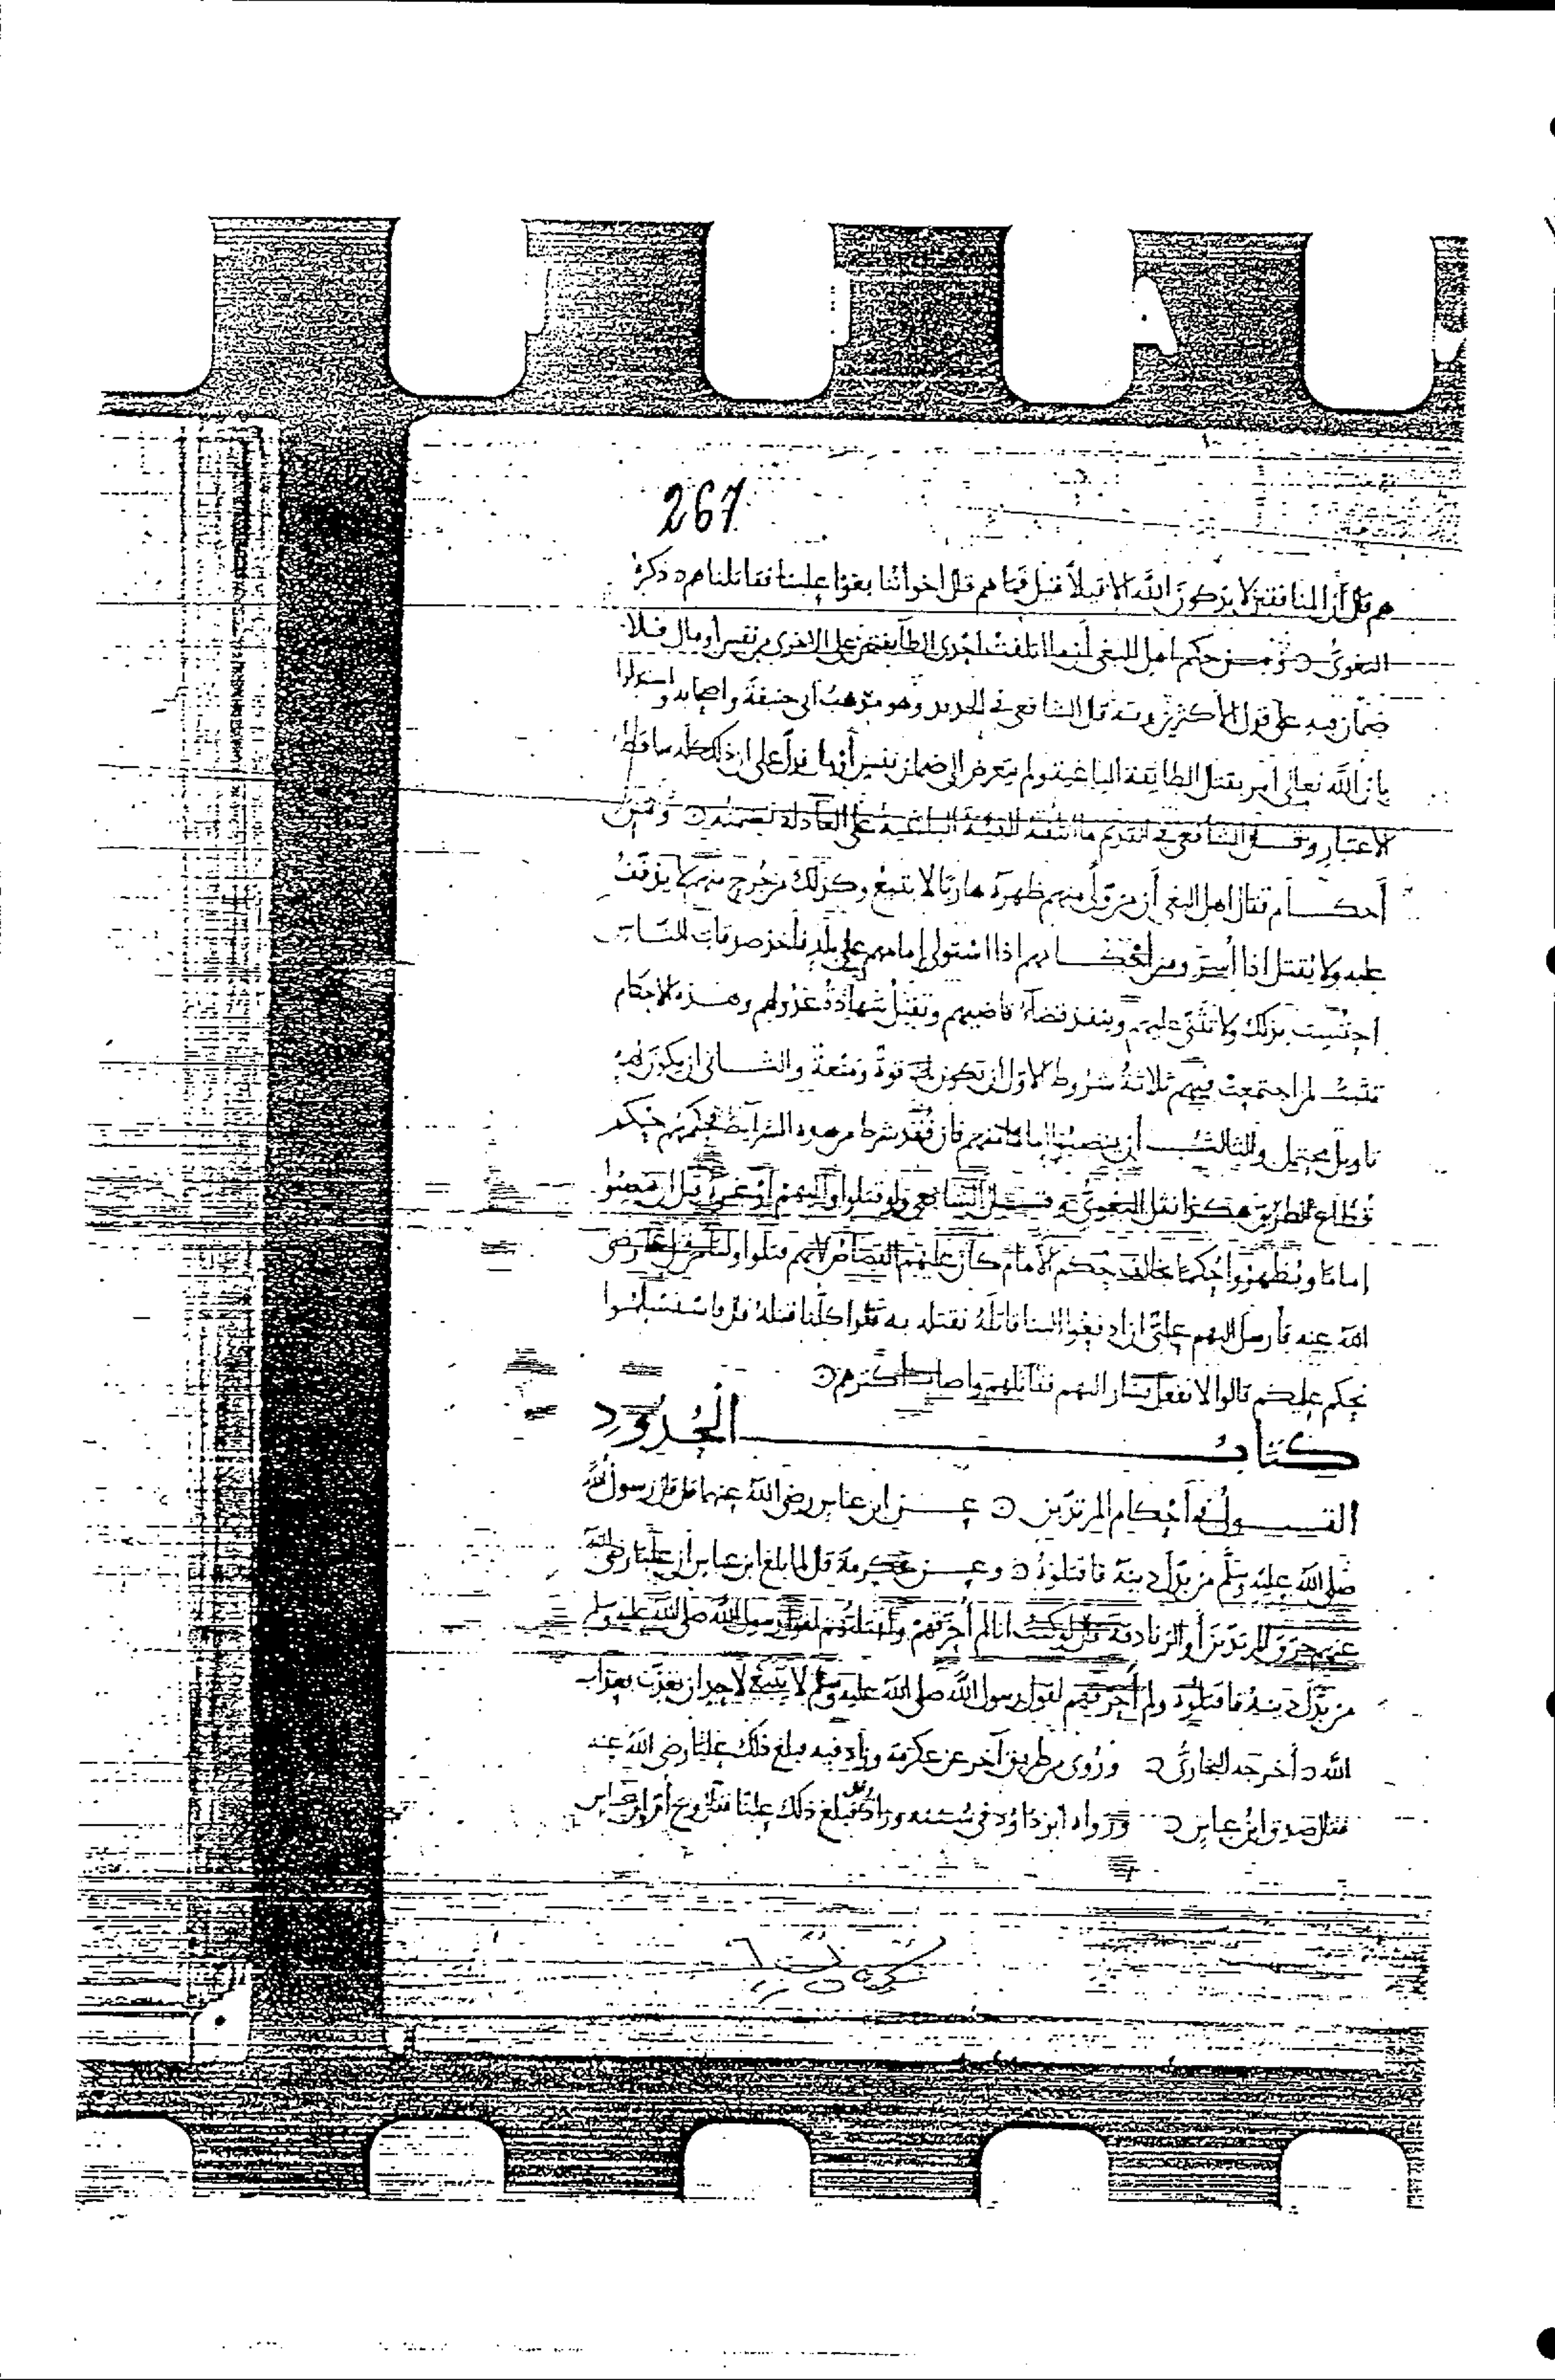 267
هم قال أن المنافقين لا يذكرون الله إلا قليلاً قيل فما هم قال إخواننا بغوا علينا فقاتلناهم ذكره
البغوي ومن حكم اهل البغي أنما اتلفت إحدى الطائفتين على الاخرى من نفس أو مال فلا
ضمان فيه على قول الأكثرين وبه قال الشافعي في الجديد وهو مذهب أبي حنيفة وأصحابه واستدلوا
بان الله تعالى امر بقتل الطائفة الباغية ولم يتعرض إلى ضمان نفس
الاعتبار وقال الشافعي في القديم ما اتلفته الفئة الباغية على العادلة تضمنه ومن
أحكام قتال اهل البغي أن من ولى منهم ظهره هاربا لا يتبع وكذلك من جرح منهم لا يوقف
عليه ولا يقتل إذا أسر ومن أحكامهم اذا استولى إمامهم على بلد فأخذ صدقات الناس
احتسبت بذلك ولا تثنى عليهم وينفذ قضاء قاضيهم وتقبل شهادة عدولهم وهذه الاحكام
تثبت لمن اجتمعت فيهم ثلاثة شروط الاول ان تكون لهم قوة ومنعة والثاني ان يكون لهم
تاويل محتمل والثالث أن ينصبوا إماما منهم فان فقد شرط من هذه الشرايط فحكمهم حكم
قطاع الطريق هكذا نقل البغوي وقال الشافعي ولو قتلوا واليهم أو غيره قبل ان ينصبوا
إماما ويظهروا حكما يخالف حكم الامام كان عليهم القصاص لانهم قتلوا رضي
الله عنه فأرسل اليهم علي ان ادفعوا الينا قاتله نقتله به قالوا كلنا قتله قال فاستسلموا
نحكم عليكم قالوا لا نفعل فسار اليهم فقاتلهم وأصاب أكثرهم
كتاب الحدود
القول في أحكام المرتدين عن ابن عباس رضي الله عنهما قال قال رسول الله
صلى الله عليه وسلم من بدل دينه فاقتلوه وعن عكرمة قال لما بلغ ابن عباس أن عليا رضي الله
عنه حرق المرتدين أو الزنادقة قال لو كنت انا لم أحرقهم ولقتلتهم لقول رسول الله صلى الله عليه وسلم
من بدل دينه فاقتلوه ولم أحرقهم لقول رسول الله صلى الله عليه وسلم لا ينبغي لاحد ان يعذب بعذاب
الله أخرجه البخاري وروي من طريق آخر عن عكرمة وزاد فيه فبلغ ذلك عليا رضي الله عنه
فقال صدق ابن عباس ورواه ابو داود في سننه وزاد فبلغ ذلك عليا فقال ويح أم ابن عباس